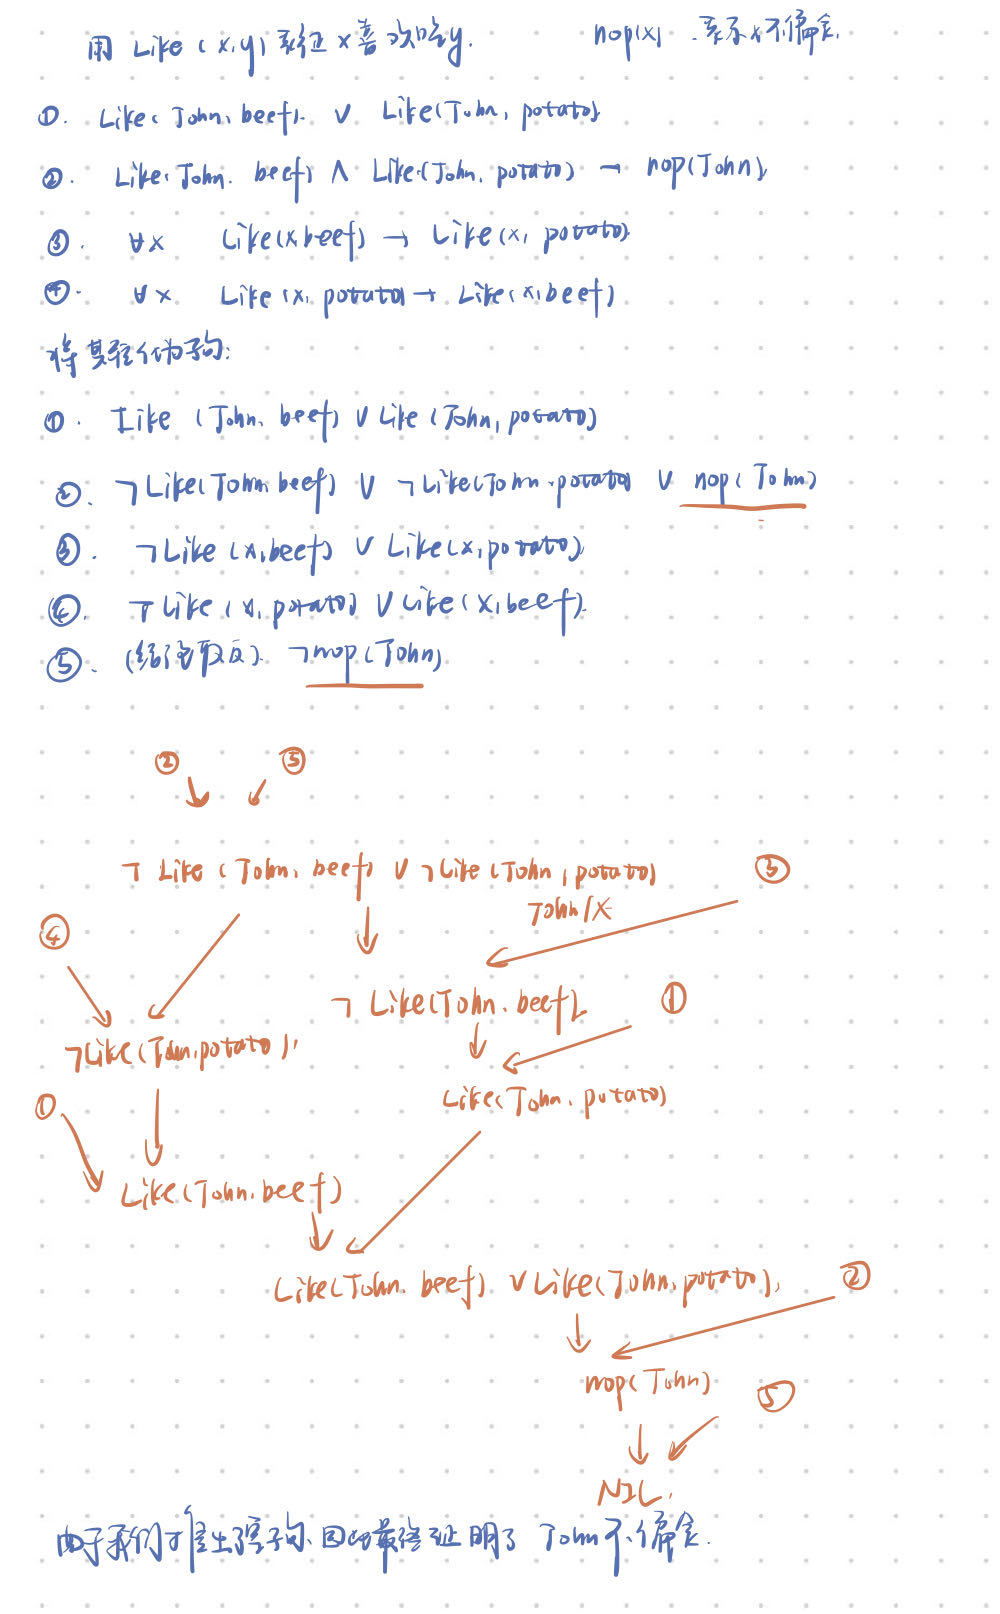 用 Like (x,y) 表征 x 喜欢吃 y. nop(x) . 表示 x 不偏食.
①. Like(John, beef). ∨ Like(John, potato)
②. Like(John. beef) ∧ Like(John, potato) → nop(John)
③. ∀x Like(x beef) → Like(x, potato)
④. ∀x Like(x, potato) → Like(x, beef)
将其转化为子句:
①. Like (John. beef) ∨ Like (John, potato)
②. ¬Like(John, beef) ∨ ¬Like(John, potato) ∨ nop(John)
③. ¬Like (x, beef) ∨ Like(x, potato)
④. ¬Like (x, potato) ∨ Like (x, beef)
⑤. (结论取反). ¬nop(John)
② ⑤
¬ Like (John, beef) ∨ ¬Like (John, potato) ③
John/x
④
¬ Like(John. beef). ①
¬Like(John, potato).
① Like(John. potato)
Like(John. beef)
Like(John. beef) ∨ Like(John, potato). ②
nop(John) ⑤
NIL.
由于我们可推出空子句、因此最终证明了 John 不偏食.